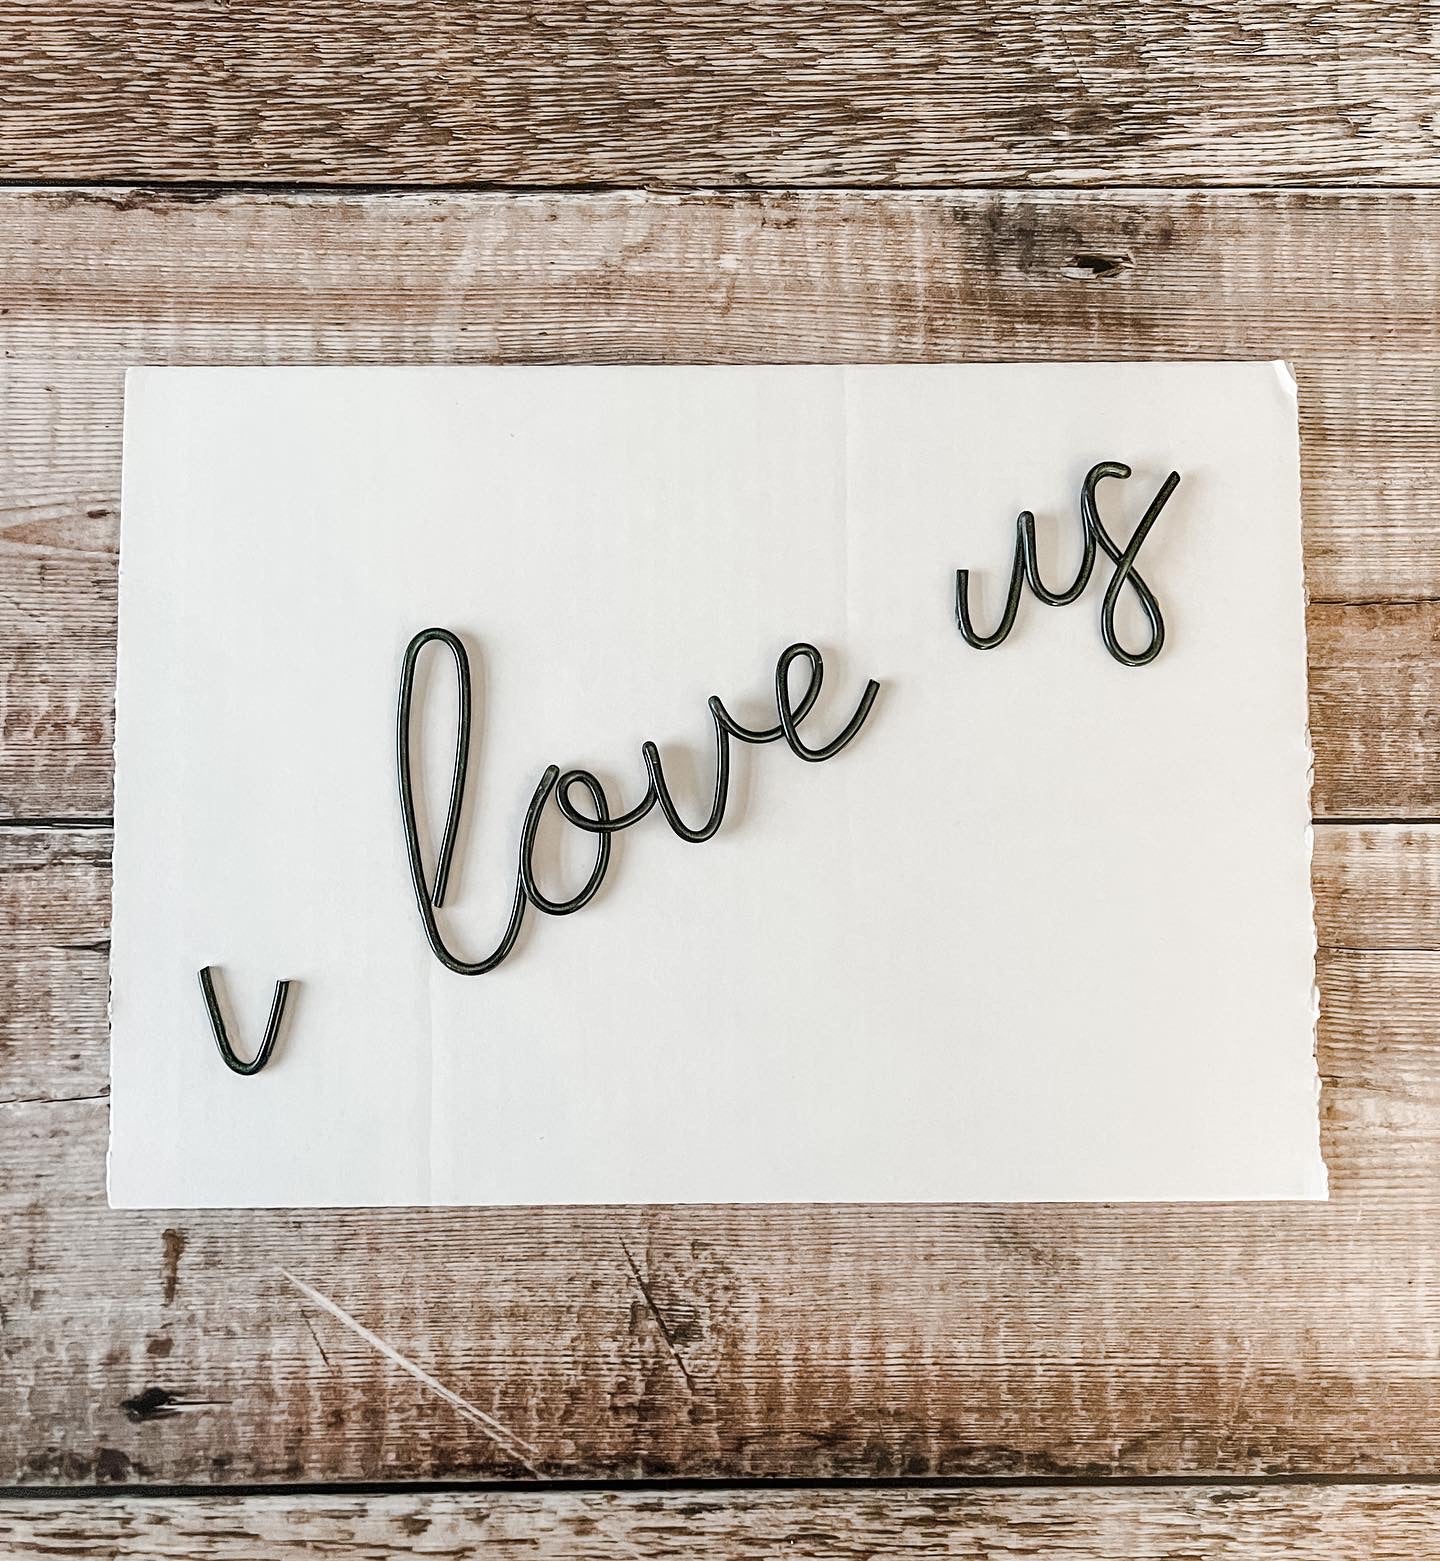 v love us